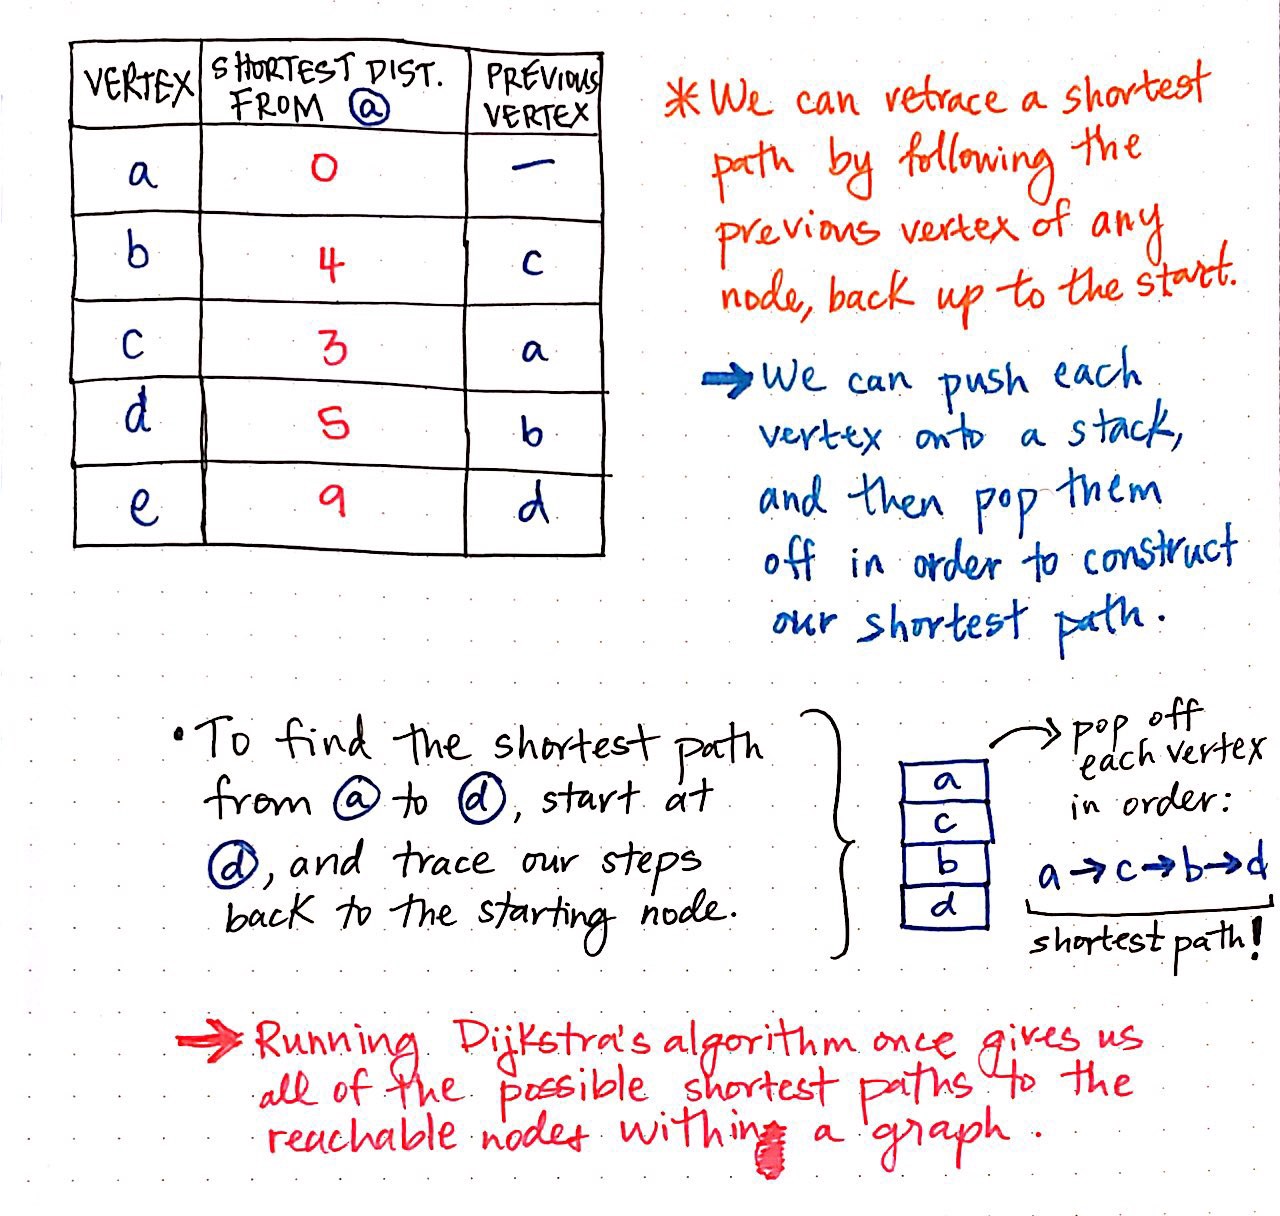 VERTEX SHORTEST DIST. FROM a PREVIOUS VERTEX
a 0 —
b 4 c
c 3 a
d 5 b
e 9 d
* We can retrace a shortest
path by following the
previous vertex of any
node, back up to the start.
→ We can push each
vertex onto a stack,
and then pop them
off in order to construct
our shortest path.
• To find the shortest path
from a to d, start at
d, and trace our steps
back to the starting node.
a
c
b
d
pop off
each vertex
in order:
a→c→b→d
shortest path!
→ Running Dijkstra's algorithm once gives us
all of the possible shortest paths to the
reachable nodes within a graph.